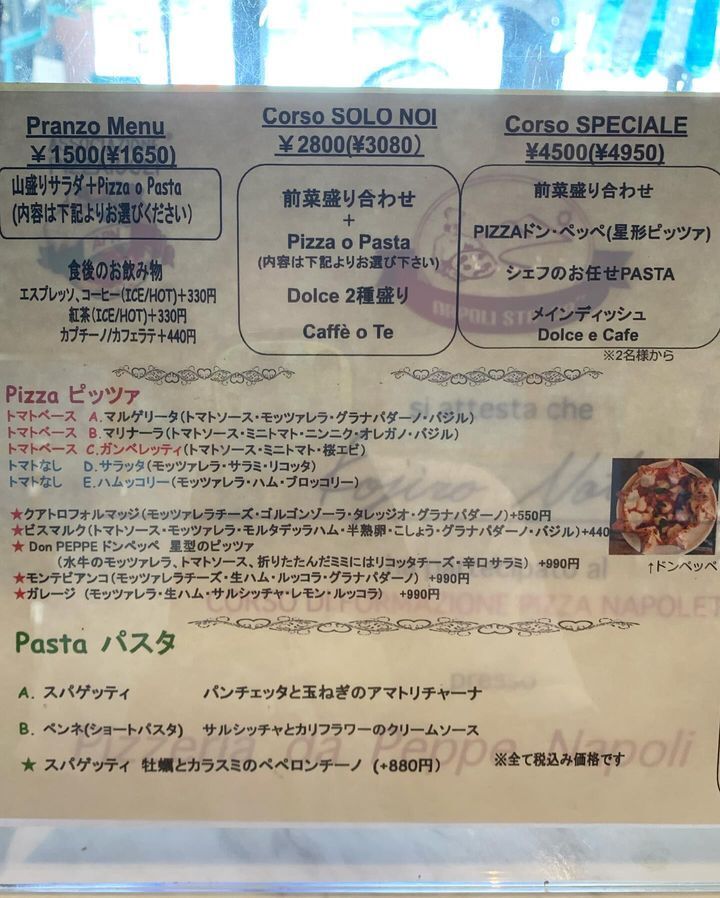 Pranzo Menu
￥1500(¥1650)
山盛りサラダ+Pizza o Pasta
(内容は下記よりお選びください)
食後のお飲み物
エスプレッソ、コーヒー(ICE/HOT)+330円
紅茶(ICE/HOT)+330円
カプチーノ/カフェラテ+440円
Corso SOLO NOI
￥2800(¥3080)
前菜盛り合わせ
+
Pizza o Pasta
(内容は下記よりお選び下さい)
Dolce 2種盛り
Caffè o Te
Corso SPECIALE
¥4500(¥4950)
前菜盛り合わせ
PIZZAドン・ペッペ(星形ピッツァ)
シェフのお任せPASTA
メインディッシュ
Dolce e Cafe
※2名様から
NAPOLI STA
si attesta che
Pizza ピッツァ
トマトベース A.マルゲリータ(トマトソース・モッツァレラ・グラナパダーノ・バジル)
トマトベース B.マリナーラ(トマトソース・ミニトマト・ニンニク・オレガノ・バジル)
トマトベース C.ガンベレッティ(トマトソース・ミニトマト・桜エビ)
トマトなし D.サラッタ(モッツァレラ・サラミ・リコッタ)
トマトなし E.ハムッコリー(モッツァレラ・ハム・ブロッコリー)
★クアトロフォルマッジ(モッツァレラチーズ・ゴルゴンゾーラ・タレッジオ・グラナパダーノ)+550円
★ビスマルク(トマトソース・モッツァレラ・モルタデッラハム・半熟卵・こしょう・グラナパダーノ・バジル)+440
★ Don PEPPE ドンペッペ 星型のピッツァ
(水牛のモッツァレラ、トマトソース、折りたたんだミミにはリコッタチーズ・辛口サラミ) +990円
★モンテビアンコ(モッツァレラチーズ・生ハム・ルッコラ・グラナパダーノ) +990円
★ガレージ (モッツァレラ・生ハム・サルシッチャ・レモン・ルッコラ) +990円
↑ドンペッペ
cipato al
CORSO DI FORMAZIONE PIZZA NAPOLET
Pasta パスタ
presso
A. スパゲッティ パンチェッタと玉ねぎのアマトリチャーナ
B. ペンネ(ショートパスタ) サルシッチャとカリフラワーのクリームソース
Pizzeria da Peppe Napoli
★ スパゲッティ 牡蠣とカラスミのペペロンチーノ (+880円)
※全て税込み価格です